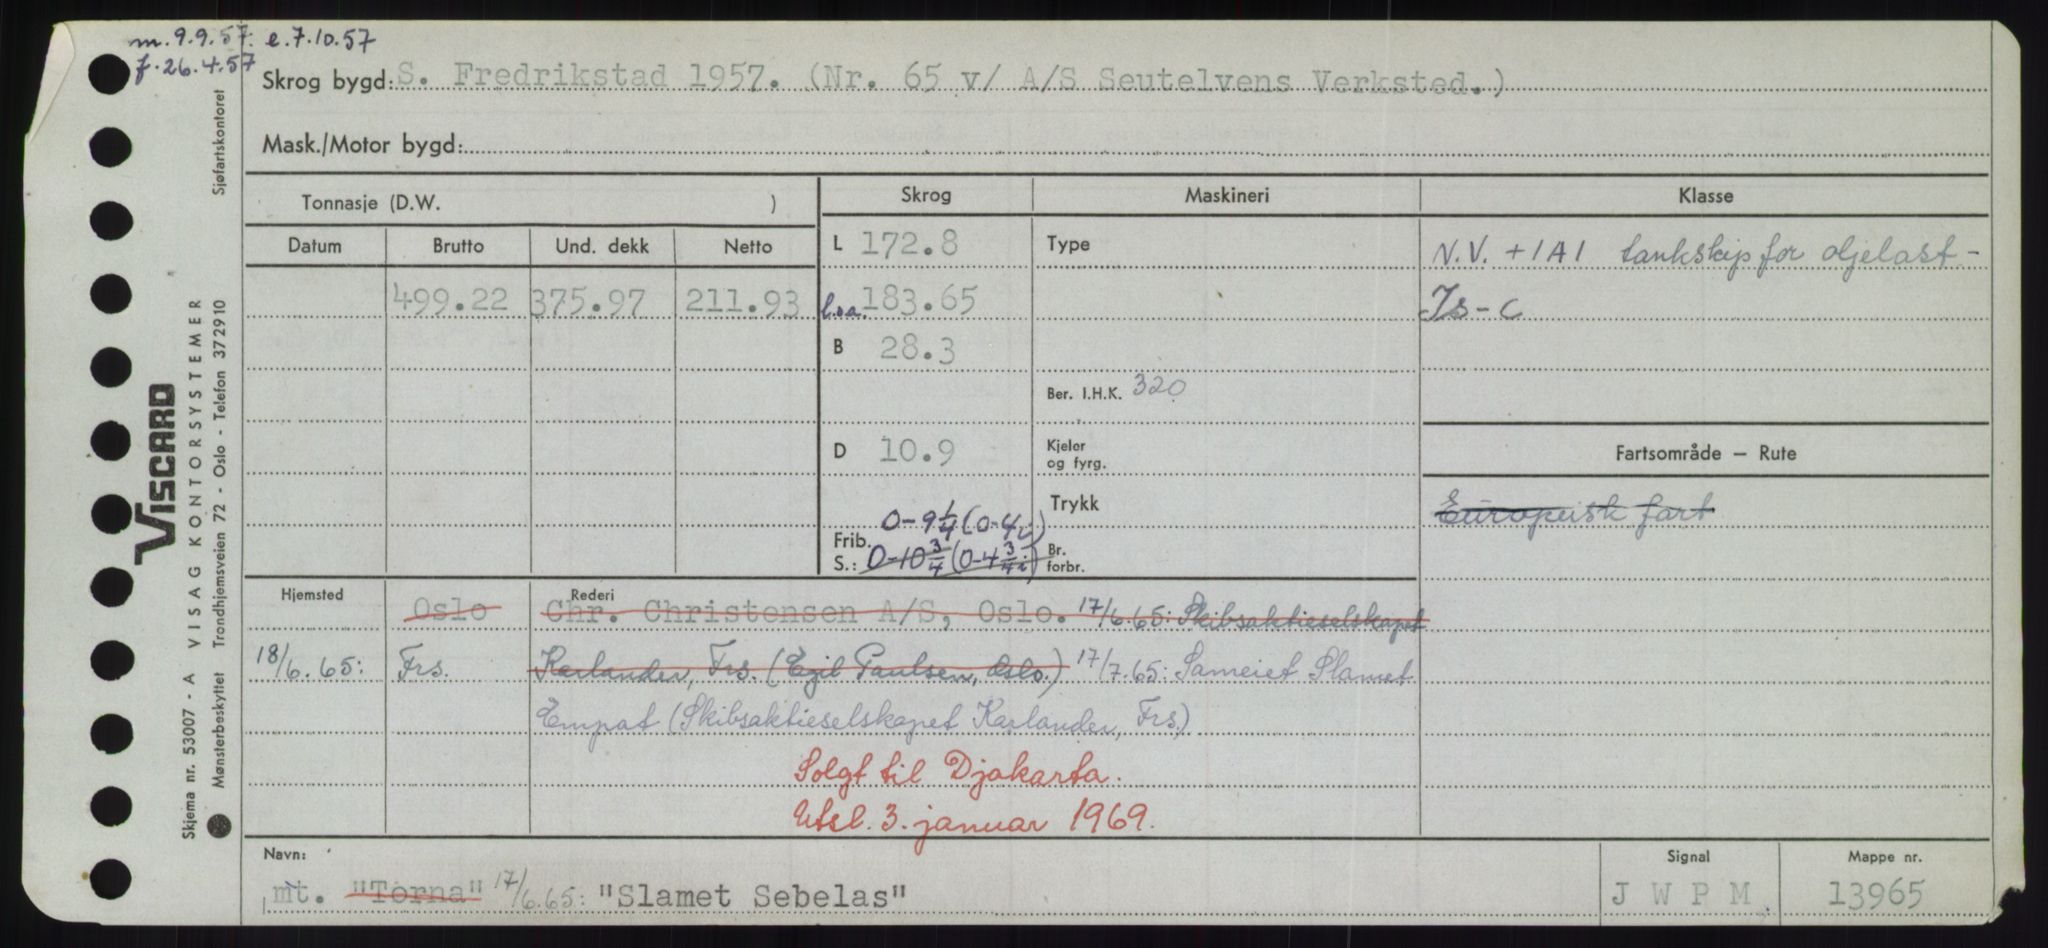 m. 9.9.57. e.7.10.57
f. 26.4.57
Skrog bygd: S. Fredrikstad 1957. (Nr. 65 v/ A/S Seutelvens Verksted.)
Mask./Motor bygd:
Tonnasje (D.W. )
Skrog Maskineri Klasse
Datum Brutto Und. dekk Netto
L 172.8 Type N.V. +1A1 tankskip for oljelast -
499.22 375.97 211.93 l.o.a. 183.65 Is-C
B 28.3
Ber. I.H.K. 320
D 10.9 Kjeler og fyrg. Fartsområde — Rute
Trykk Europeisk fart
0-9 1/4 (0-4i)
Frib. S.: 0-10 3/4 (0-4 3/4 i) Br. forbr.
Hjemsted Rederi
Oslo Chr. Christensen A/S, Oslo. 17/6.65: Skibsaktieselskapet
18/6.65: Frs. Karlander, Frs. (Egil Paulsen, Oslo.) 17/7.65: Sameiet Slamet
Empat (Skibsaktieselskapet Karlander, Frs.)
Solgt til Djakarta.
Utsl. 3. januar 1969.
Navn: Signal Mappe nr.
mt. "Torna" 17/6.65: "Slamet Sebelas" J W P M 13965
Skjema nr. 53007 - A VISAG KONTORSYSTEMER Sjøfartskontoret
Mønsterbeskyttet Trondhjemsveien 72 - Oslo - Telefon 372910
VISCARD